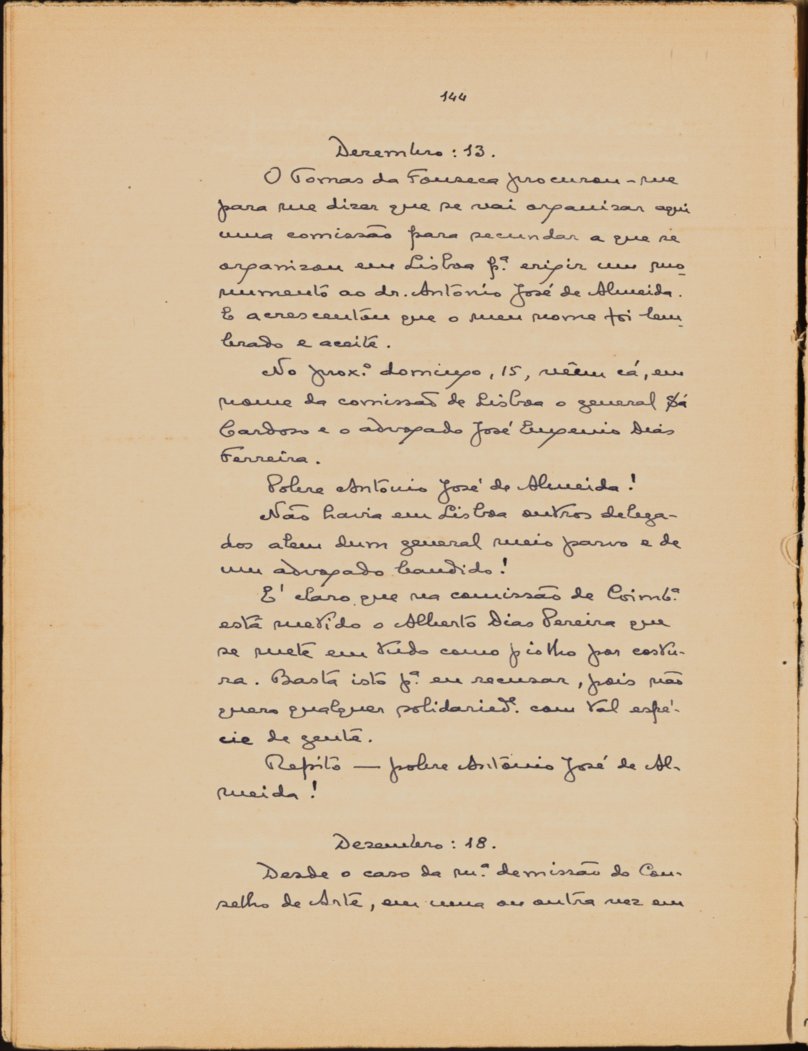 144
Dezembro: 13.
O Tomas da Fonseca procurou-me
para me dizer que se vai organisar aqui
uma comissão para secundar a que se
organisou em Lisboa pª. erigir um mo-
numento ao dr. António José de Almeida.
E acrescentou que o meu nome foi lem-
brado e aceite.
No prox.º domingo, 15, vêem cá, em
nome da comissaõ de Lisboa o general Sá
Cardoso e o advogado José Eugenio Dias
Ferreira.
Pobre Antonio José de Almeida!
Não havia em Lisboa outros delega-
dos alem dum general meio parvo e de
um advogado bandido!
E' claro que na comissão de Coimbª.
está metido o Alberto Dias Pereira que
se mete em tudo como piolho por costu-
ra. Basta isto pª. eu recusar, pois não
quero qualquer solidaried.e com tal espé-
cie de gente.
Repito — pobre António José de Al-
meida!
Dezembro: 18.
Desde o caso da m.ª demissão do Con-
selho de Arte, em uma ou outra vez em